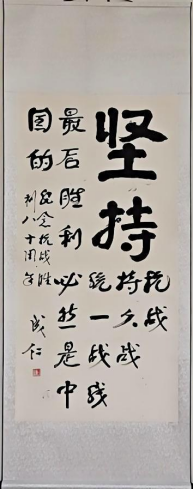 坚持
抗战
持久战
统一战线
最后胜利必然是中
国的
纪念抗战胜
利八十周年
成仁